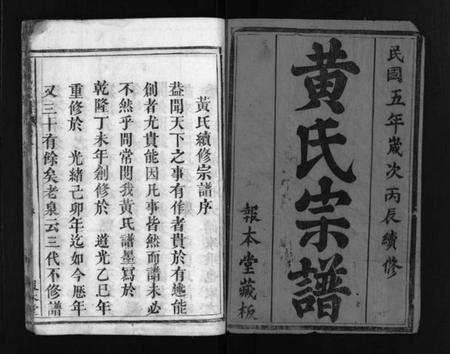 民國五年歲次丙辰續修
黃氏宗譜
報本堂藏板
黃氏續修宗譜序
葢聞天下之事有作者貴於有述能
創者尤貴能因凡事皆然而譜未必
不然乎間常閱我黃氏譜墨寫於
乾隆丁未年創修於 道光乙巳年
重修於 光緒己卯年迄如今歷年
又三十有餘矣老泉云三代不修譜